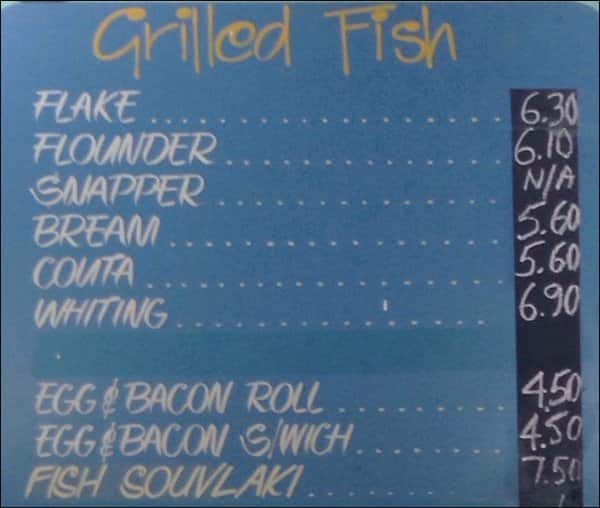 Grilled Fish
FLAKE .......................... 6.30
FLOUNDER .................... 6.10
SNAPPER ..................... N/A
BREAM ........................ 5.60
COUTA ......................... 5.60
WHITING ...................... 6.90
EGG & BACON ROLL ......... 4.50
EGG & BACON S/WICH ....... 4.50
FISH SOUVLAKI ............. 7.50